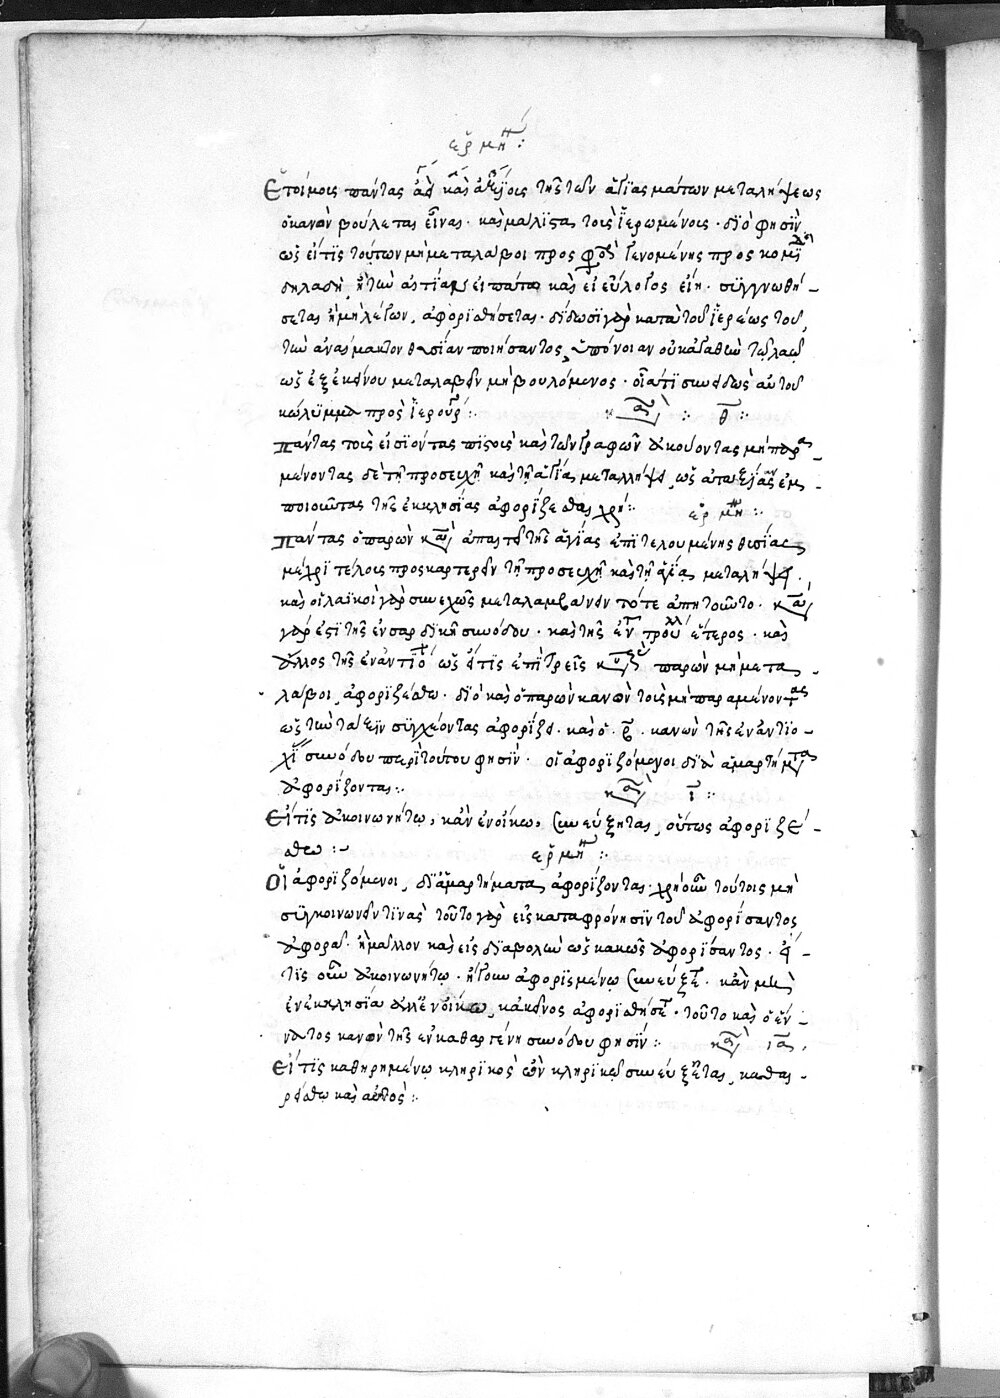 ἑρμη :
Ἑτοίμοις πάντας ἀεὶ καὶ ἀξίοις τῆς τῶν ἁγιασμάτων μεταλήψεως
ὁ κανὼν βούλεται εἶναι· καὶ μάλιστα τοὺς ἱερωμένοις· διό φησιν
ὡς εἴ τις τούτων μὴ μεταλάβοι προσφορᾶς γενομένης προσκομιδὴ
δηλαδή, ἢ τὴν αἰτίαν εἰπάτω καὶ εἰ εὔλογος εἴη· συγγνωθή-
σεται ἢ μὴ λέγων, ἀφορισθήσεται· δίδωσι γὰρ κατὰ τοῦ ἱερέως τοῦ
τὴν ἀναίμακτον θυσίαν ποιήσαντος, ὑπόνοιαν οὐκ ἀγαθὴν τῷ λαῷ
ὡς ἐξ ἐκείνου μεταλαβεῖν μὴ βουλόμενος· οἷά τι συνειδὼς αὐτοῦ
κώλυμμα πρὸς ἱερουρ : καν : θ :
Πάντας τοὺς εἰσϊόντας πϊστοὺς καὶ τῶν γραφῶν ἀκούοντας μὴ παρα-
μένοντας δὲ τῇ προσευχῇ καὶ τῇ ἁγίᾳ μεταλήψει, ὡς ἀταξίαν ἐμ-
ποιοῦντας τῆς ἐκκλησίας ἀφορίζεσθαι χρή : ἑρμη :
Πάντας ὁ παρὼν καν ἀπαιτεῖ τῆς ἁγίας ἐπιτελουμένης θυσίας
μέχρι τέλοις προσκαρτερεῖν τῇ προσευχῇ καὶ τῇ ἁγίᾳ μεταλήψει.
καὶ οἱ λαϊκοὶ γὰρ συνεχῶς μεταλαμβάνειν τότε ἀπῃτοῦντο· καν
γάρ ἐστι τῆς ἐν σαρδικῇ συνόδου· καὶ τῆς ἐν τρούλλ ἕτερος· καὶ
ἄλλος τῆς ἐν ἀντιοχ ὡς εἴ τις ἐπὶ τρεῖς κυριακ παρὼν μὴ μετα-
λάβοι, ἀφοριζέσθω· διὸ καὶ ὁ παρὼν κανὼν τοὺς μὴ παραμένοντας
ὡς τὴν τάξιν συγχέοντας ἀφορίζει· καὶ ὁ β κανὼν τῆς ἐν ἀντιο-
χ συνόδου περὶ τούτου φησίν· οἱ ἀφοριζόμενοι διὰ ἁμαρτήματα
ἀφορίζονται : καν ι :
Εἴ τις ἀκοινωνήτῳ, κἂν ἐν οἴκῳ, συνεύξηται, οὗτως ἀφοριζέ-
σθω :- ἑρμη :
Οἱ ἀφοριζόμενοι, δι᾽ ἁμαρτήματα ἀφορίζονται· χρὴ οὖν τούτοις μὴ
συγκοινωνεῖν τϊνάς· τοῦτο γὰρ εἰς καταφρόνησιν τοῦ ἀφορίσαντος
ἀφορᾷ· ἢ μᾶλλον καὶ εἰς διαβολὴν ὡς κακῶς ἀφορίσαντος· εἴ
τις οὖν ἀκοινωνήτῳ· ἤγουν ἀφορισμένῳ συνεύξετ· κἂν μὴ
ἐν ἐκκλησίᾳ ἀλλ᾽ ἐν οἴκῳ, κἀκεῖνος ἀφορισθήσετ· τοῦτο καὶ ὁ ἔν-
νατος κανὼν τῆς ἐν καθαργένῃ συνόδου φησίν : καν ια.
Εἴ τις καθῃρημένῳ κληρικὸς ὢν κληρικῷ συνεύξηται, καθαι-
ρείσθω καὶ αὐτός :